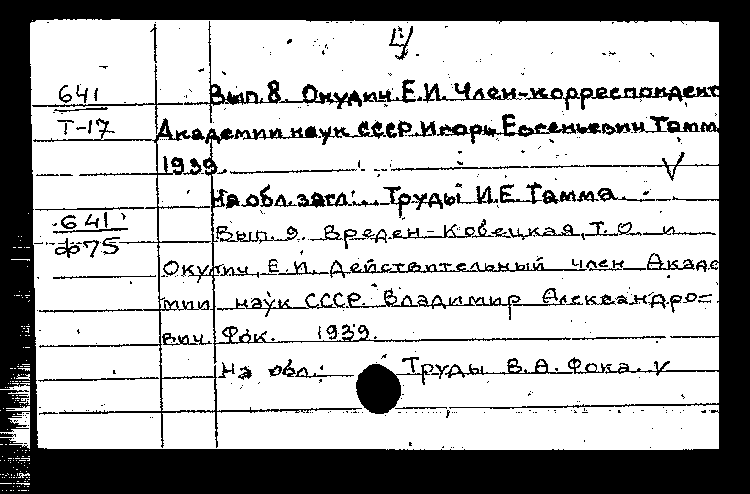 4
641
Т-17
Вып. 8. Окудич Е.И. Член-корреспондент
Академии наук СССР Игорь Евгеньевич Тамм
1939.
V
На обл. загл.: Труды И.Е. Тамма.
641
Ф75
Вып. 9. Вреден-Кобецкая, Т.О. и
Окулич, Е.И. Действительный член Акаде
мии наук СССР. Владимир Александро=
вич Фок. 1939.
На обл.: Труды В.А. Фока. V